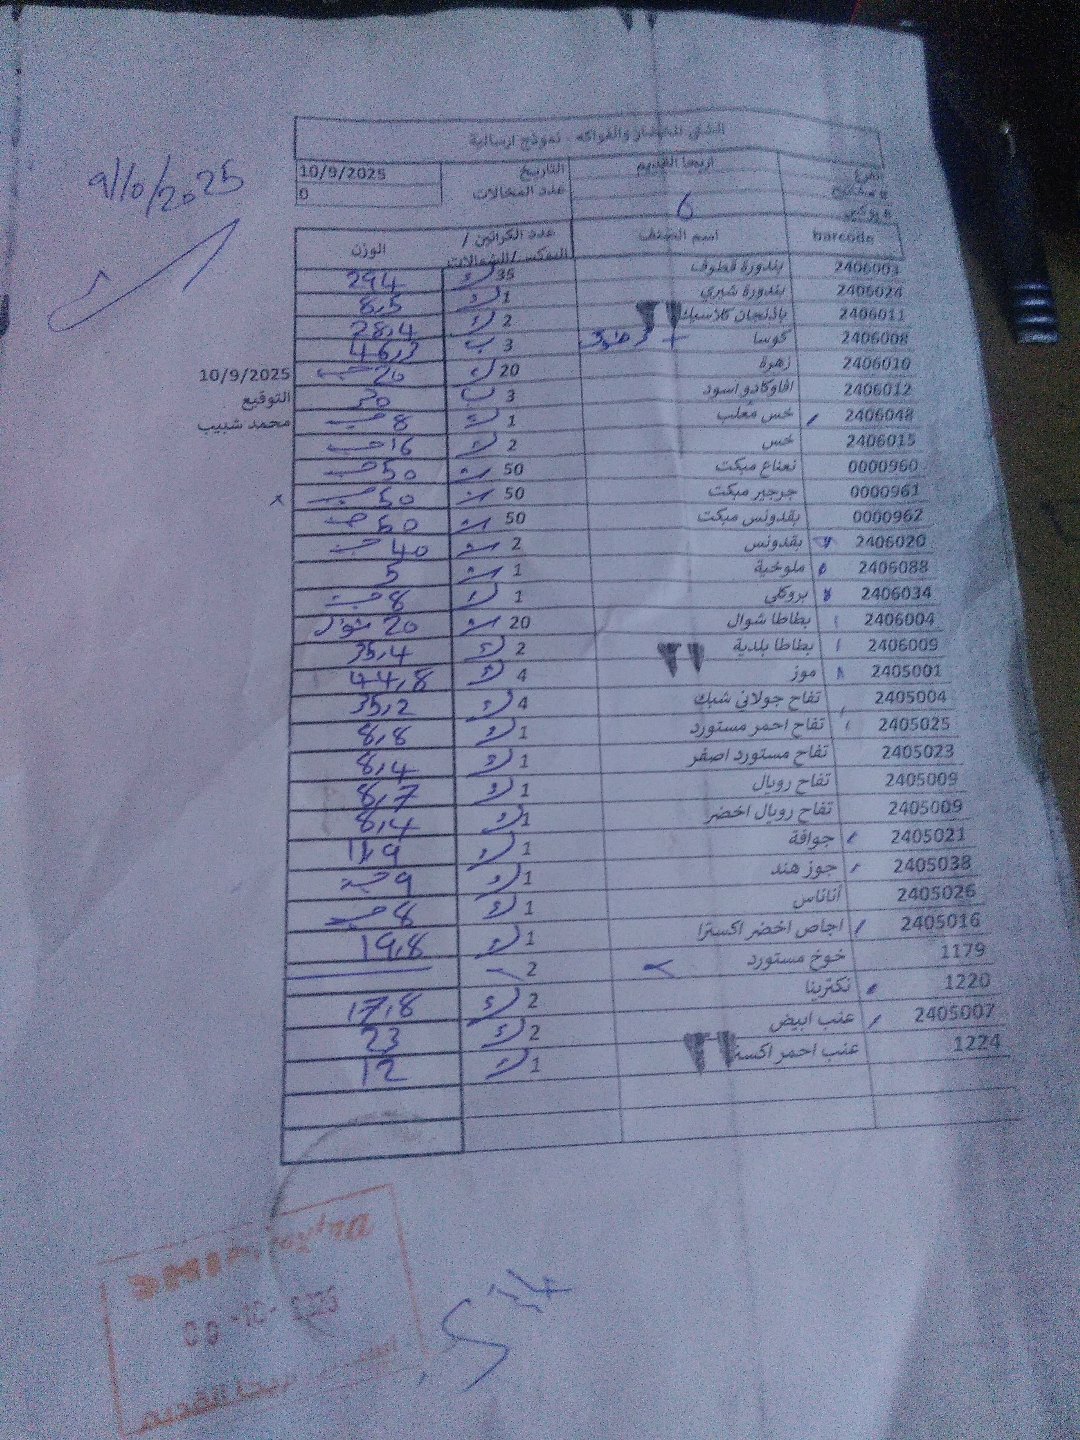 الشني للخضار والفواكه - نموذج ارسالية
اريحا القديم التاريخ 10/9/2025
عدد المخالات 0
6
9/10/2025
barcode اسم الصنف عدد الكراتين / البوكس/الشوالات الوزن
2406003 بندورة قطوف 35 ك 294
2406024 بندورة شيري 1 ك 8,5
2406011 باذنجان كلاسيك 2 ك 28,4
2406008 كوسا 3 ب 46,3
2406010 زهرة 20 ك 20 حبة
2406012 افاوكادو اسود 3 ب 30
2406048 خس مغلب 1 ك 8 حبة
2406015 خس 2 ك 16 حبة
0000960 نعناع مبكت 50 ش 50 حبة
0000961 جرجير مبكت 50 ش 50 حبة
0000962 بقدونس مبكت 50 ش 50 حبة
2406020 بقدونس 2 ش 40 حبة
2406088 ملوخية 1 ش 5
2406034 بروكلي 1 ك 8 حبة
2406004 بطاطا شوال 20 ش 20 شوال
2406009 بطاطا بلدية 2 ك 35,4
2405001 موز 4 ك 44,8
2405004 تفاح جولاني شبك 4 ك 35,2
2405025 تفاح احمر مستورد 1 ك 8,8
2405023 تفاح مستورد اصفر 1 ك 8,4
2405009 تفاح رويال 1 ك 8,7
2405009 تفاح رويال اخضر 1 ك 8,4
2405021 جوافة 1 ك 11,9
2405038 جوز هند 1 ك 9 حبة
2405026 أناناس 1 ك 8 حبة
2405016 اجاص اخضر اكسترا 1 ك 19,8
1179 خوخ مستورد 2
1220 نكترينا 2 ك 17,8
2405007 عنب ابيض 2 ك 23
1224 عنب احمر اكست 1 ك 12
10/9/2025
التوقيع
محمد شبيب